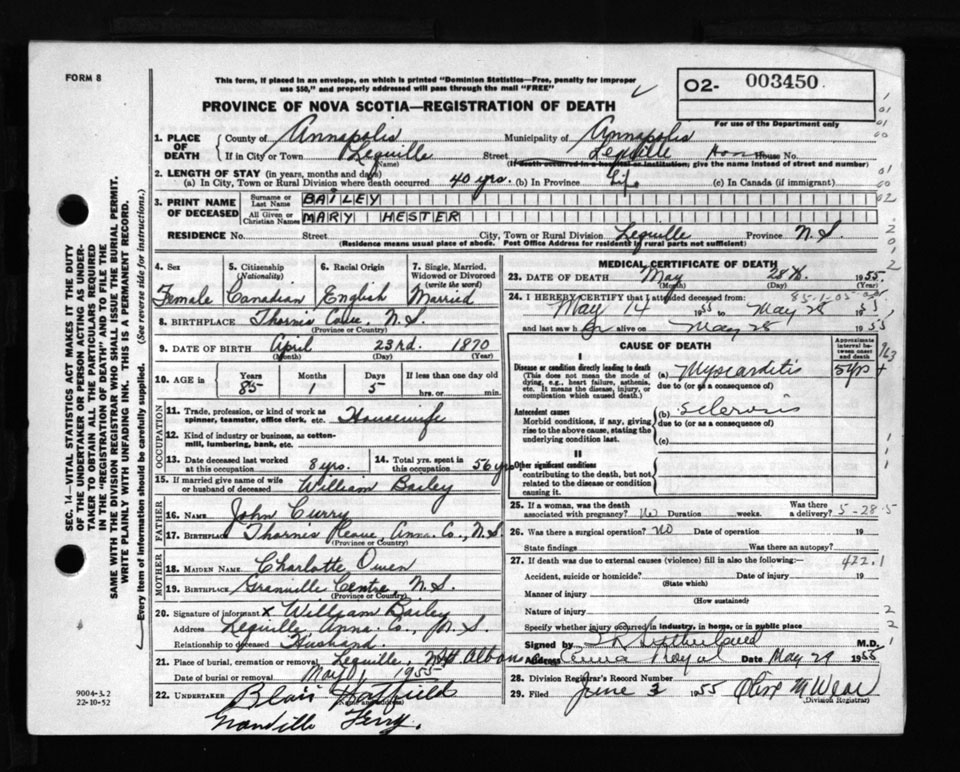 FORM 8
This form, if placed in an envelope, on which is printed "Dominion Statistics—Free, penalty for improper
use $50," and properly addressed will pass through the mail "FREE"
PROVINCE OF NOVA SCOTIA—REGISTRATION OF DEATH
O2- 003450
For use of the Department only
1. PLACE OF DEATH
County of Annapolis Municipality of Annapolis
If in City or Town Lequille (Name) Street Lequille House No.
(If death occurred in a hospital or institution; give name instead of street and number)
2. LENGTH OF STAY (in years, months and days)
(a) In City, Town or Rural Division where death occurred 40 yrs. (b) In Province (c) In Canada (if immigrant)
3. PRINT NAME OF DECEASED
Surname or Last Name BAILEY
All Given or Christian Names MARY HESTER
RESIDENCE No. Street City, Town or Rural Division Lequille Province N.S.
(Residence means usual place of abode. Post Office Address for residents of rural parts not sufficient)
4. Sex 5. Citizenship (Nationality) 6. Racial Origin 7. Single, Married, Widowed or Divorced (write the word)
Female Canadian English Married
8. BIRTHPLACE Thornis Cove, N.S.
(Province or Country)
9. DATE OF BIRTH April 23rd. 1870
(Month) (Day) (Year)
10. AGE in Years 85 Months 1 Days 5 If less than one day old hrs. or min.
OCCUPATION
11. Trade, profession, or kind of work as spinner, teamster, office clerk, etc. Housewife
12. Kind of industry or business, as cotton-mill, lumbering, bank, etc.
13. Date deceased last worked at this occupation 8 yrs. 14. Total yrs. spent in this occupation 56 yrs
15. If married give name of wife or husband of deceased William Bailey
FATHER
16. NAME John Curry
17. BIRTHPLACE Thornis Anna. Co., N.S.
(Province or Country)
MOTHER
18. MAIDEN NAME Charlotte Owen
19. BIRTHPLACE Granville Centre N.S.
(Province or Country)
20. Signature of informant X William Bailey
Address Lequille Anna. Co., N.S.
Relationship to deceased Husband.
21. Place of burial, cremation or removal Lequille, Mt Albans
Date of burial or removal May 1, 1955
22. UNDERTAKER Blair Hatfield
(Name and address)
Granville Ferry.
MEDICAL CERTIFICATE OF DEATH
23. DATE OF DEATH May 28th. 1955
(Month) (Day)
24. I HEREBY CERTIFY that I attended deceased from:
May 14 1955 to May 28 1955
and last saw her alive on May 28 1955
CAUSE OF DEATH
Approximate interval between onset and death
I
Disease or condition directly leading to death (a) Myocarditis 5 yrs +
(This does not mean the mode of dying, e.g., heart failure, asthenia, etc. It means the disease, injury, or complication which caused death.)
due to (or as a consequence of)
Antecedent causes (b) Sclerosis
Morbid conditions, if any, giving rise to the above cause, stating the underlying condition last.
due to (or as a consequence of)
(c)
II
Other significant conditions
contributing to the death, but not related to the disease or condition causing it.
25. If a woman, was the death associated with pregnancy? No Duration weeks. Was there a delivery? 5-28-5
26. Was there a surgical operation? No Date of operation 19
State findings Was there an autopsy?
27. If death was due to external causes (violence) fill in also the following: 422.1
Accident, suicide or homicide? Date of injury 19
(State which)
Manner of injury
(How sustained)
Nature of injury
Specify whether injury occurred in industry, in home, or in public place
Signed by Sutherland M.D.
Address Anna Royal Date May 29 1955
28. Division Registrar's Record Number
29. Filed June 3 1955
(Division Registrar)
9004-3.2
22-10-52
SEC. 14—VITAL STATISTICS ACT MAKES IT THE DUTY
OF THE UNDERTAKER OR PERSON ACTING AS UNDER-
TAKER TO OBTAIN ALL THE PARTICULARS REQUIRED
IN THE "REGISTRATION OF DEATH" AND TO FILE THE
SAME WITH THE DIVISION REGISTRAR WHO SHALL ISSUE THE BURIAL PERMIT.
WRITE PLAINLY WITH UNFADING INK. THIS IS A PERMANENT RECORD.
Every item of information should be carefully supplied. (See reverse side for instructions.)